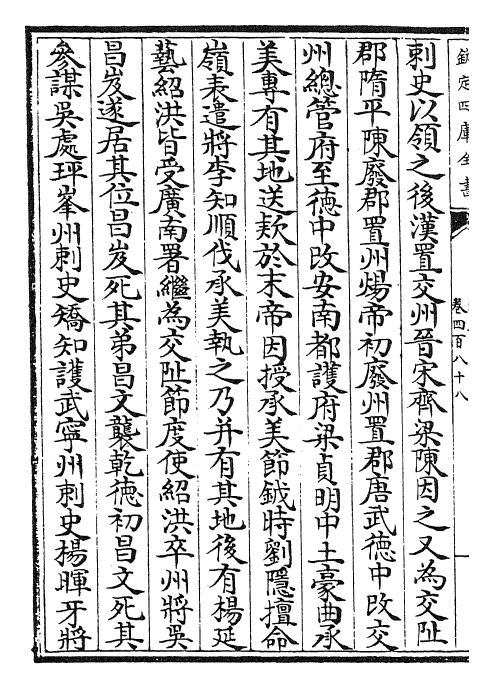 欽定四庫全書
卷四百八十八
刺史以領之後漢置交州晉宋齊梁陳因之又為交阯
郡隋平陳廢郡置州煬帝初廢州置郡唐武德中改交
州總管府至德中改安南都護府梁貞明中土豪曲承
美專有其地送欵於末帝因授承美節鉞時劉隱擅命
嶺表遣將李知順伐承美執之乃并有其地後有楊延
藝紹洪皆受廣南署繼為交阯節度使紹洪卒州將吳
昌岌遂居其位昌岌死其弟昌文襲乾德初昌文死其
參謀吳處玶峯州刺史矯知護武寧州刺史楊暉牙將